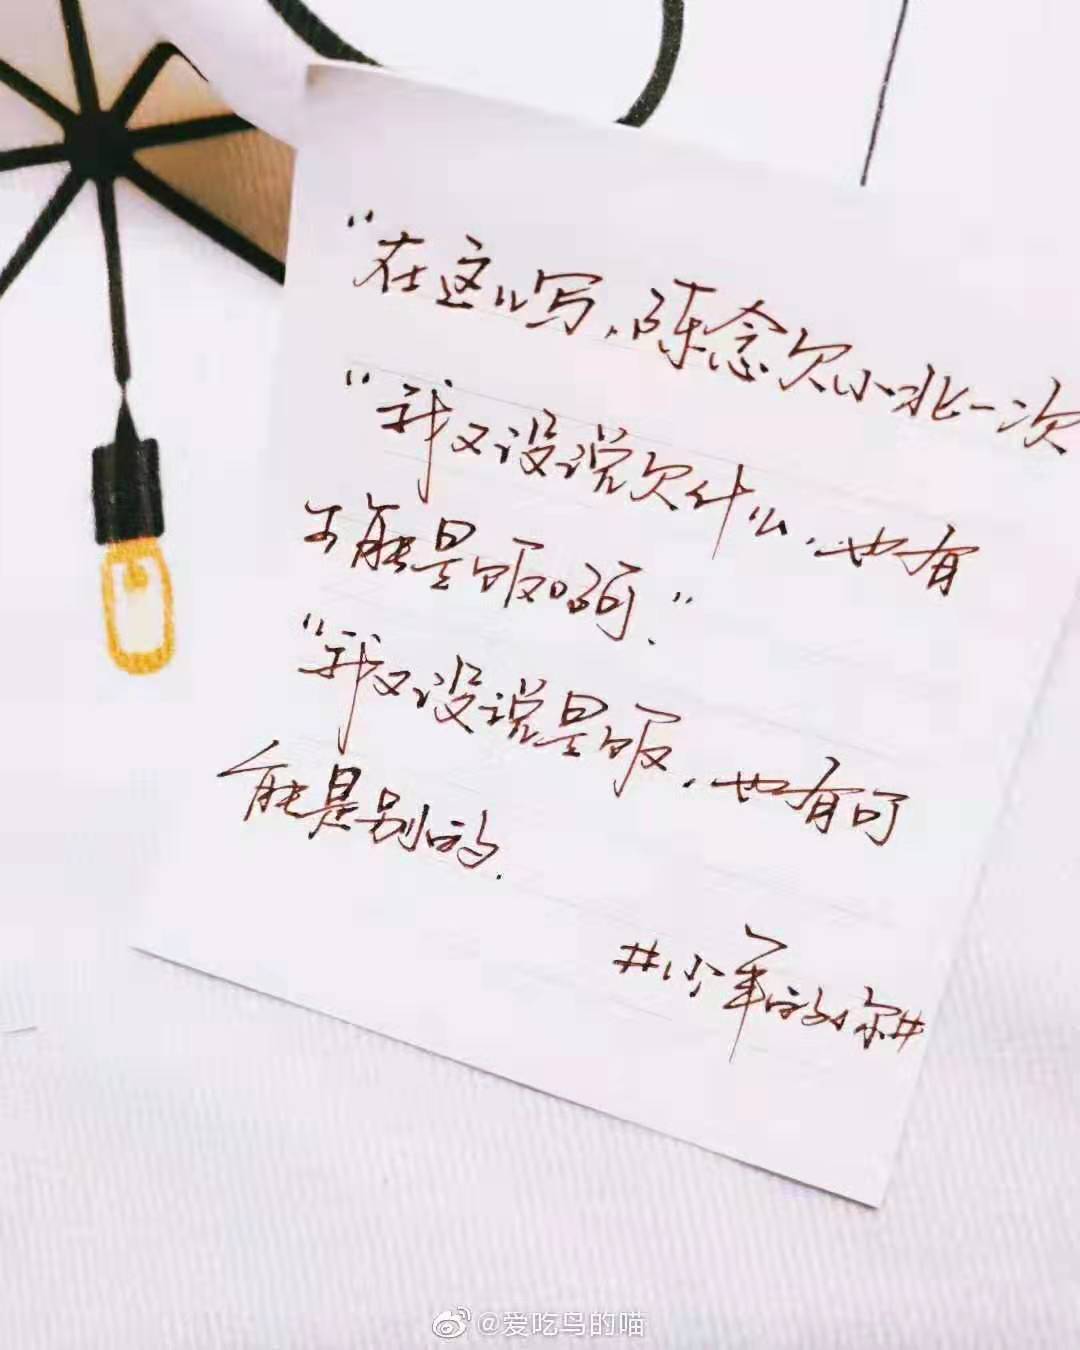 “在这儿写,陈念欠小北一次
“我又没说欠什么,也有
可能是饭啊.”
“我又没说是饭,也有可
能是别的.
#少年的你#
@爱吃鸟的喵